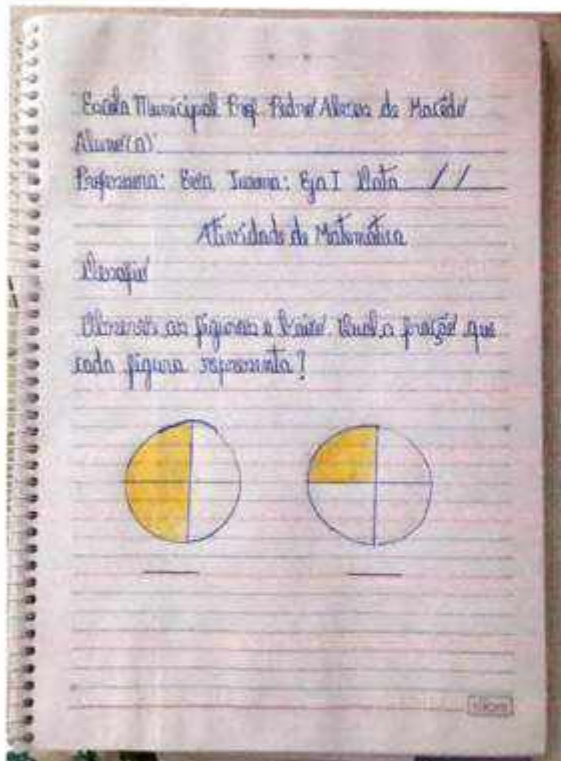 Escola Municipal Prof. Pedro Abreu de Macêdo
Aluno(a)
Professora: Turma: Eja I Data / /
Atividade de Matemática
Desafio
Observe as figuras a baixo. Qual a fração que
cada figura representa?